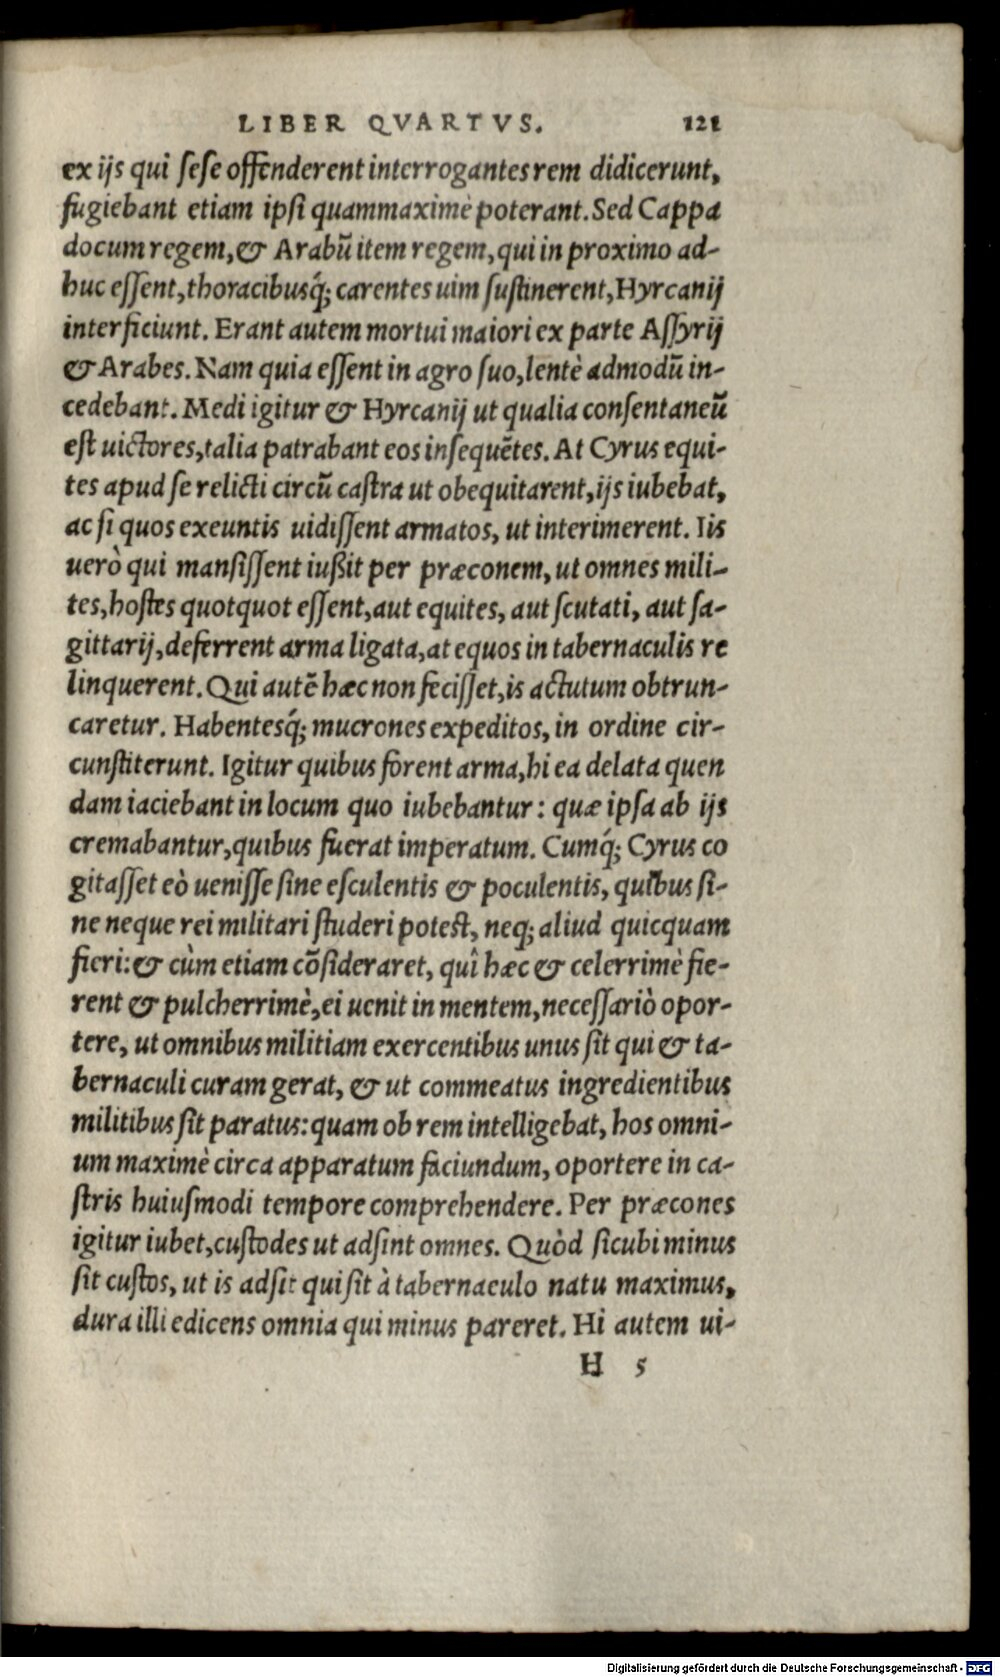 LIBER QVARTVS. 121
ex ijs qui sese offenderent interrogantes rem didicerunt,
fugiebant etiam ipsi quammaximè poterant. Sed Cappa
docum regem, & Arabũ item regem, qui in proximo ad-
huc essent, thoracibusq́; carentes uim sustinerent, Hyrcanij
interficiunt. Erant autem mortui maiori ex parte Assyrij
& Arabes. Nam quia essent in agro suo, lentè admodũ in-
cedebant. Medi igitur & Hyrcanij ut qualia consentaneũ
est uictores, talia patrabant eos insequẽtes. At Cyrus equi-
tes apud se relicti circũ castra ut obequitarent, ijs iubebat,
ac si quos exeuntis uidissent armatos, ut interimerent. Iis
uerò qui mansissent iußit per præconem, ut omnes mili-
tes, hostes quotquot essent, aut equites, aut scutati, aut sa-
gittarij, deferrent arma ligata, at equos in tabernaculis re
linquerent. Qui autẽ hæc non fecisset, is actutum obtrun-
caretur. Habentesq́; mucrones expeditos, in ordine cir-
cunstiterunt. Igitur quibus forent arma, hi ea delata quen
dam iaciebant in locum quo iubebantur: quæ ipsa ab ijs
cremabantur, quibus fuerat imperatum. Cumq́; Cyrus co
gitasset eò uenisse sine esculentis & poculentis, quibus si-
ne neque rei militari studeri potest, neq; aliud quicquam
fieri: & cùm etiam cõsideraret, quî hæc & celerrimè fie-
rent & pulcherrimè, ei uenit in mentem, necessariò opor-
tere, ut omnibus militiam exercentibus unus sit qui & ta-
bernaculi curam gerat, & ut commeatus ingredientibus
militibus sit paratus: quam ob rem intelligebat, hos omni-
um maximè circa apparatum faciundum, oportere in ca-
stris huiusmodi tempore comprehendere. Per præcones
igitur iubet, custodes ut adsint omnes. Quòd sicubi minus
sit custos, ut is adsit qui sit à tabernaculo natu maximus,
dura illi edicens omnia qui minus pareret. Hi autem ui-
H 5
Digitalisierung gefördert durch die Deutsche Forschungsgemeinschaft - DFG